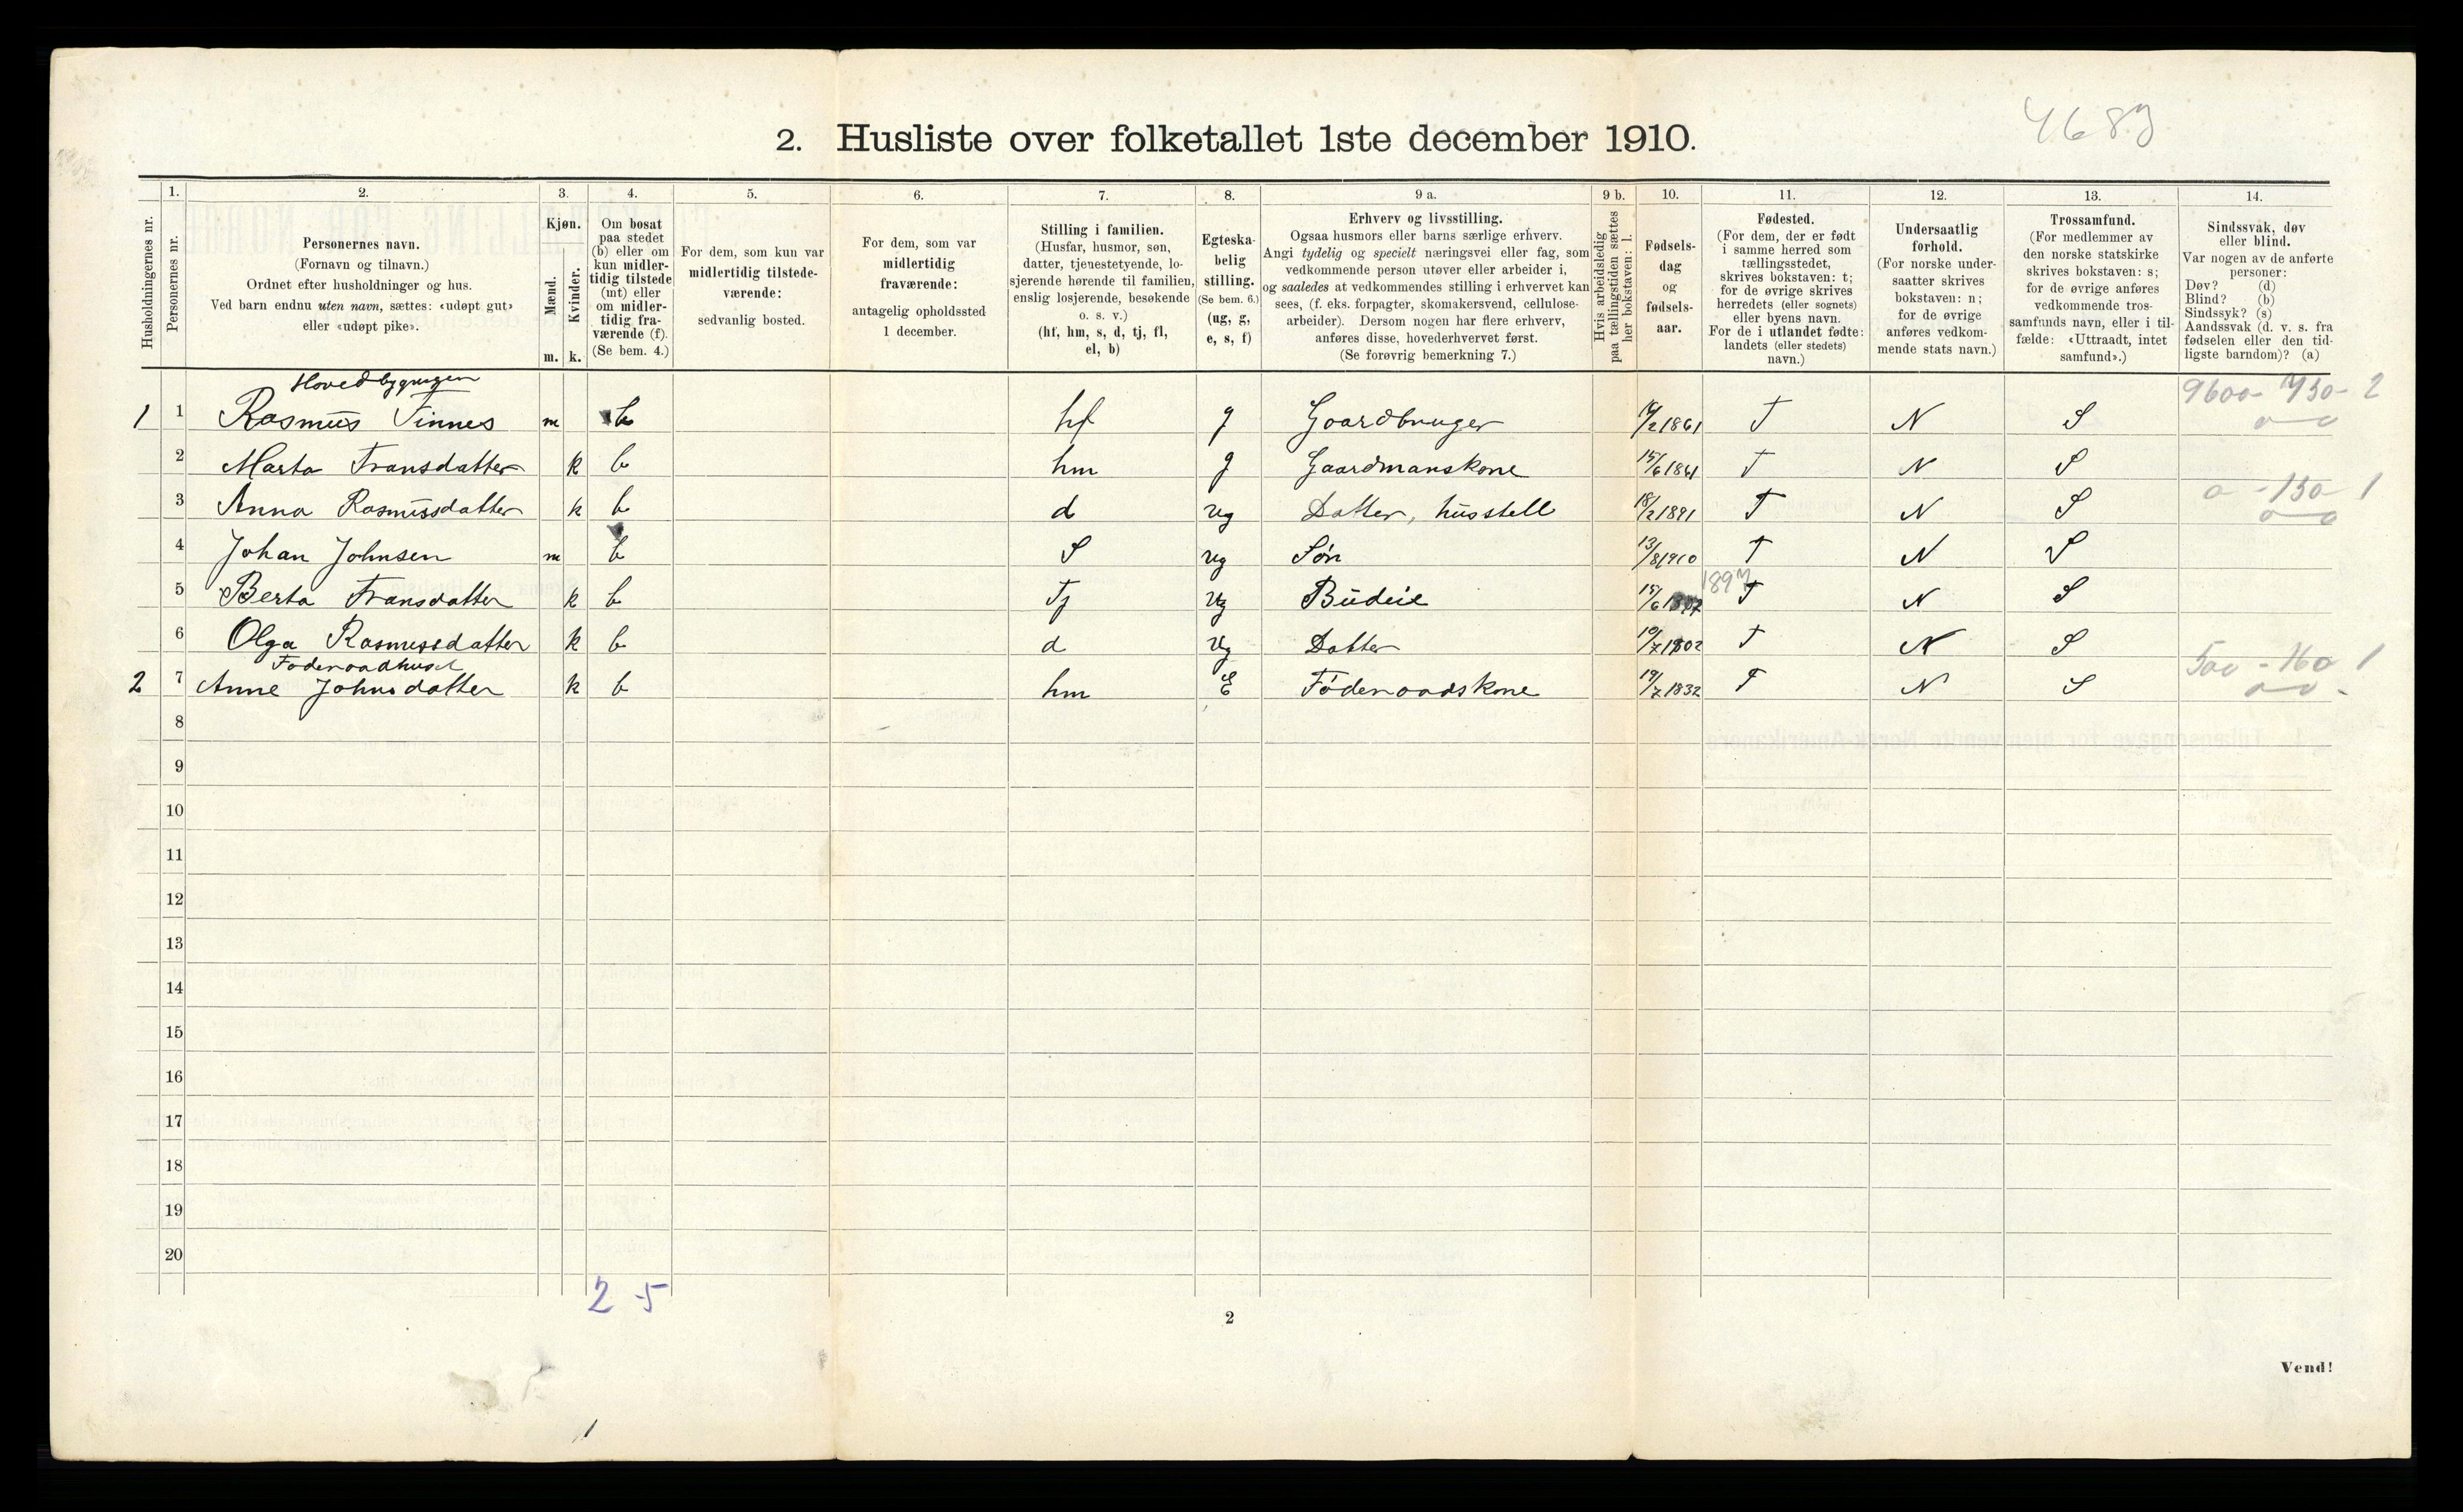 4683
2. Husliste over folketallet 1ste december 1910.
Husholdningernes nr.
1.
Personernes nr.
2.
Personernes navn.
(Fornavn og tilnavn.)
Ordnet efter husholdninger og hus.
Ved barn endnu uten navn, sættes: «udøpt gut»
eller «udøpt pike».
3.
Kjøn.
Mænd.
Kvinder.
m. k.
4.
Om bosat
paa stedet
(b) eller om
kun midler-
tidig tilstede
(mt) eller
om midler-
tidig fra-
værende (f).
(Se bem. 4.)
5.
For dem, som kun var
midlertidig tilstede-
værende:
sedvanlig bosted.
6.
For dem, som var
midlertidig
fraværende:
antagelig opholdssted
1 december.
7.
Stilling i familien.
(Husfar, husmor, søn,
datter, tjenestetyende, lo-
sjerende hørende til familien,
enslig losjerende, besøkende
o. s. v.)
(hf, hm, s, d, tj, fl,
el, b)
8.
Egteska-
belig
stilling.
(Se bem. 6.)
(ug, g,
e, s, f)
9 a.
Erhverv og livsstilling.
Ogsaa husmors eller barns særlige erhverv.
Angi tydelig og specielt næringsvei eller fag, som
vedkommende person utøver eller arbeider i,
og saaledes at vedkommendes stilling i erhvervet kan
sees, (f. eks. forpagter, skomakersvend, cellulose-
arbeider). Dersom nogen har flere erhverv,
anføres disse, hovederhvervet først.
(Se forøvrig bemerkning 7.)
9 b.
Hvis arbeidsledig
paa tællingstiden sættes
her bokstaven: l.
10.
Fødsels-
dag
og
fødsels-
aar.
11.
Fødested.
(For dem, der er født
i samme herred som
tællingsstedet,
skrives bokstaven: t;
for de øvrige skrives
herredets (eller sognets)
eller byens navn.
For de i utlandet fødte:
landets (eller stedets)
navn.)
12.
Undersaatlig
forhold.
(For norske under-
saatter skrives
bokstaven: n;
for de øvrige
anføres vedkom-
mende stats navn.)
13.
Trossamfund.
(For medlemmer av
den norske statskirke
skrives bokstaven: s;
for de øvrige anføres
vedkommende tros-
samfunds navn, eller i til-
fælde: «Uttraadt, intet
samfund».)
14.
Sindssvak, døv
eller blind.
Var nogen av de anførte
personer:
Døv? (d)
Blind? (b)
Sindssyk? (s)
Aandssvak (d. v. s. fra
fødselen eller den tid-
ligste barndom)? (a)
Hovedbygnugen
9600- 730- 2
1 1 Rasmus Finnes m b hf g Gaardbruger /2 1861 T N S
2 Marta Fransdatter k b hm g Gaardmanskone 15/6 1861 T N S
0 - 130- 1
3 Anna Rasmussdatter k b d ug Datter, husstell 18/2 1891 T N S
4 Johan Johnsen m b S ug Søn 13/8 1910 T N S
1897
5 Berta Fransdatter k b Tj ug Budeie 15/6 T N S
6 Olga Rasmussdatter k b d ug Datter 10/7 1902 T N S
Føderaadhuset
500 - 160 1
2 7 Anne Johnsdatter k b hm E Føderaadskone 19/7 1832 T N S
8
9
10
11
12
13
14
15
16
17
18
19
20
2 5
2
Vend!